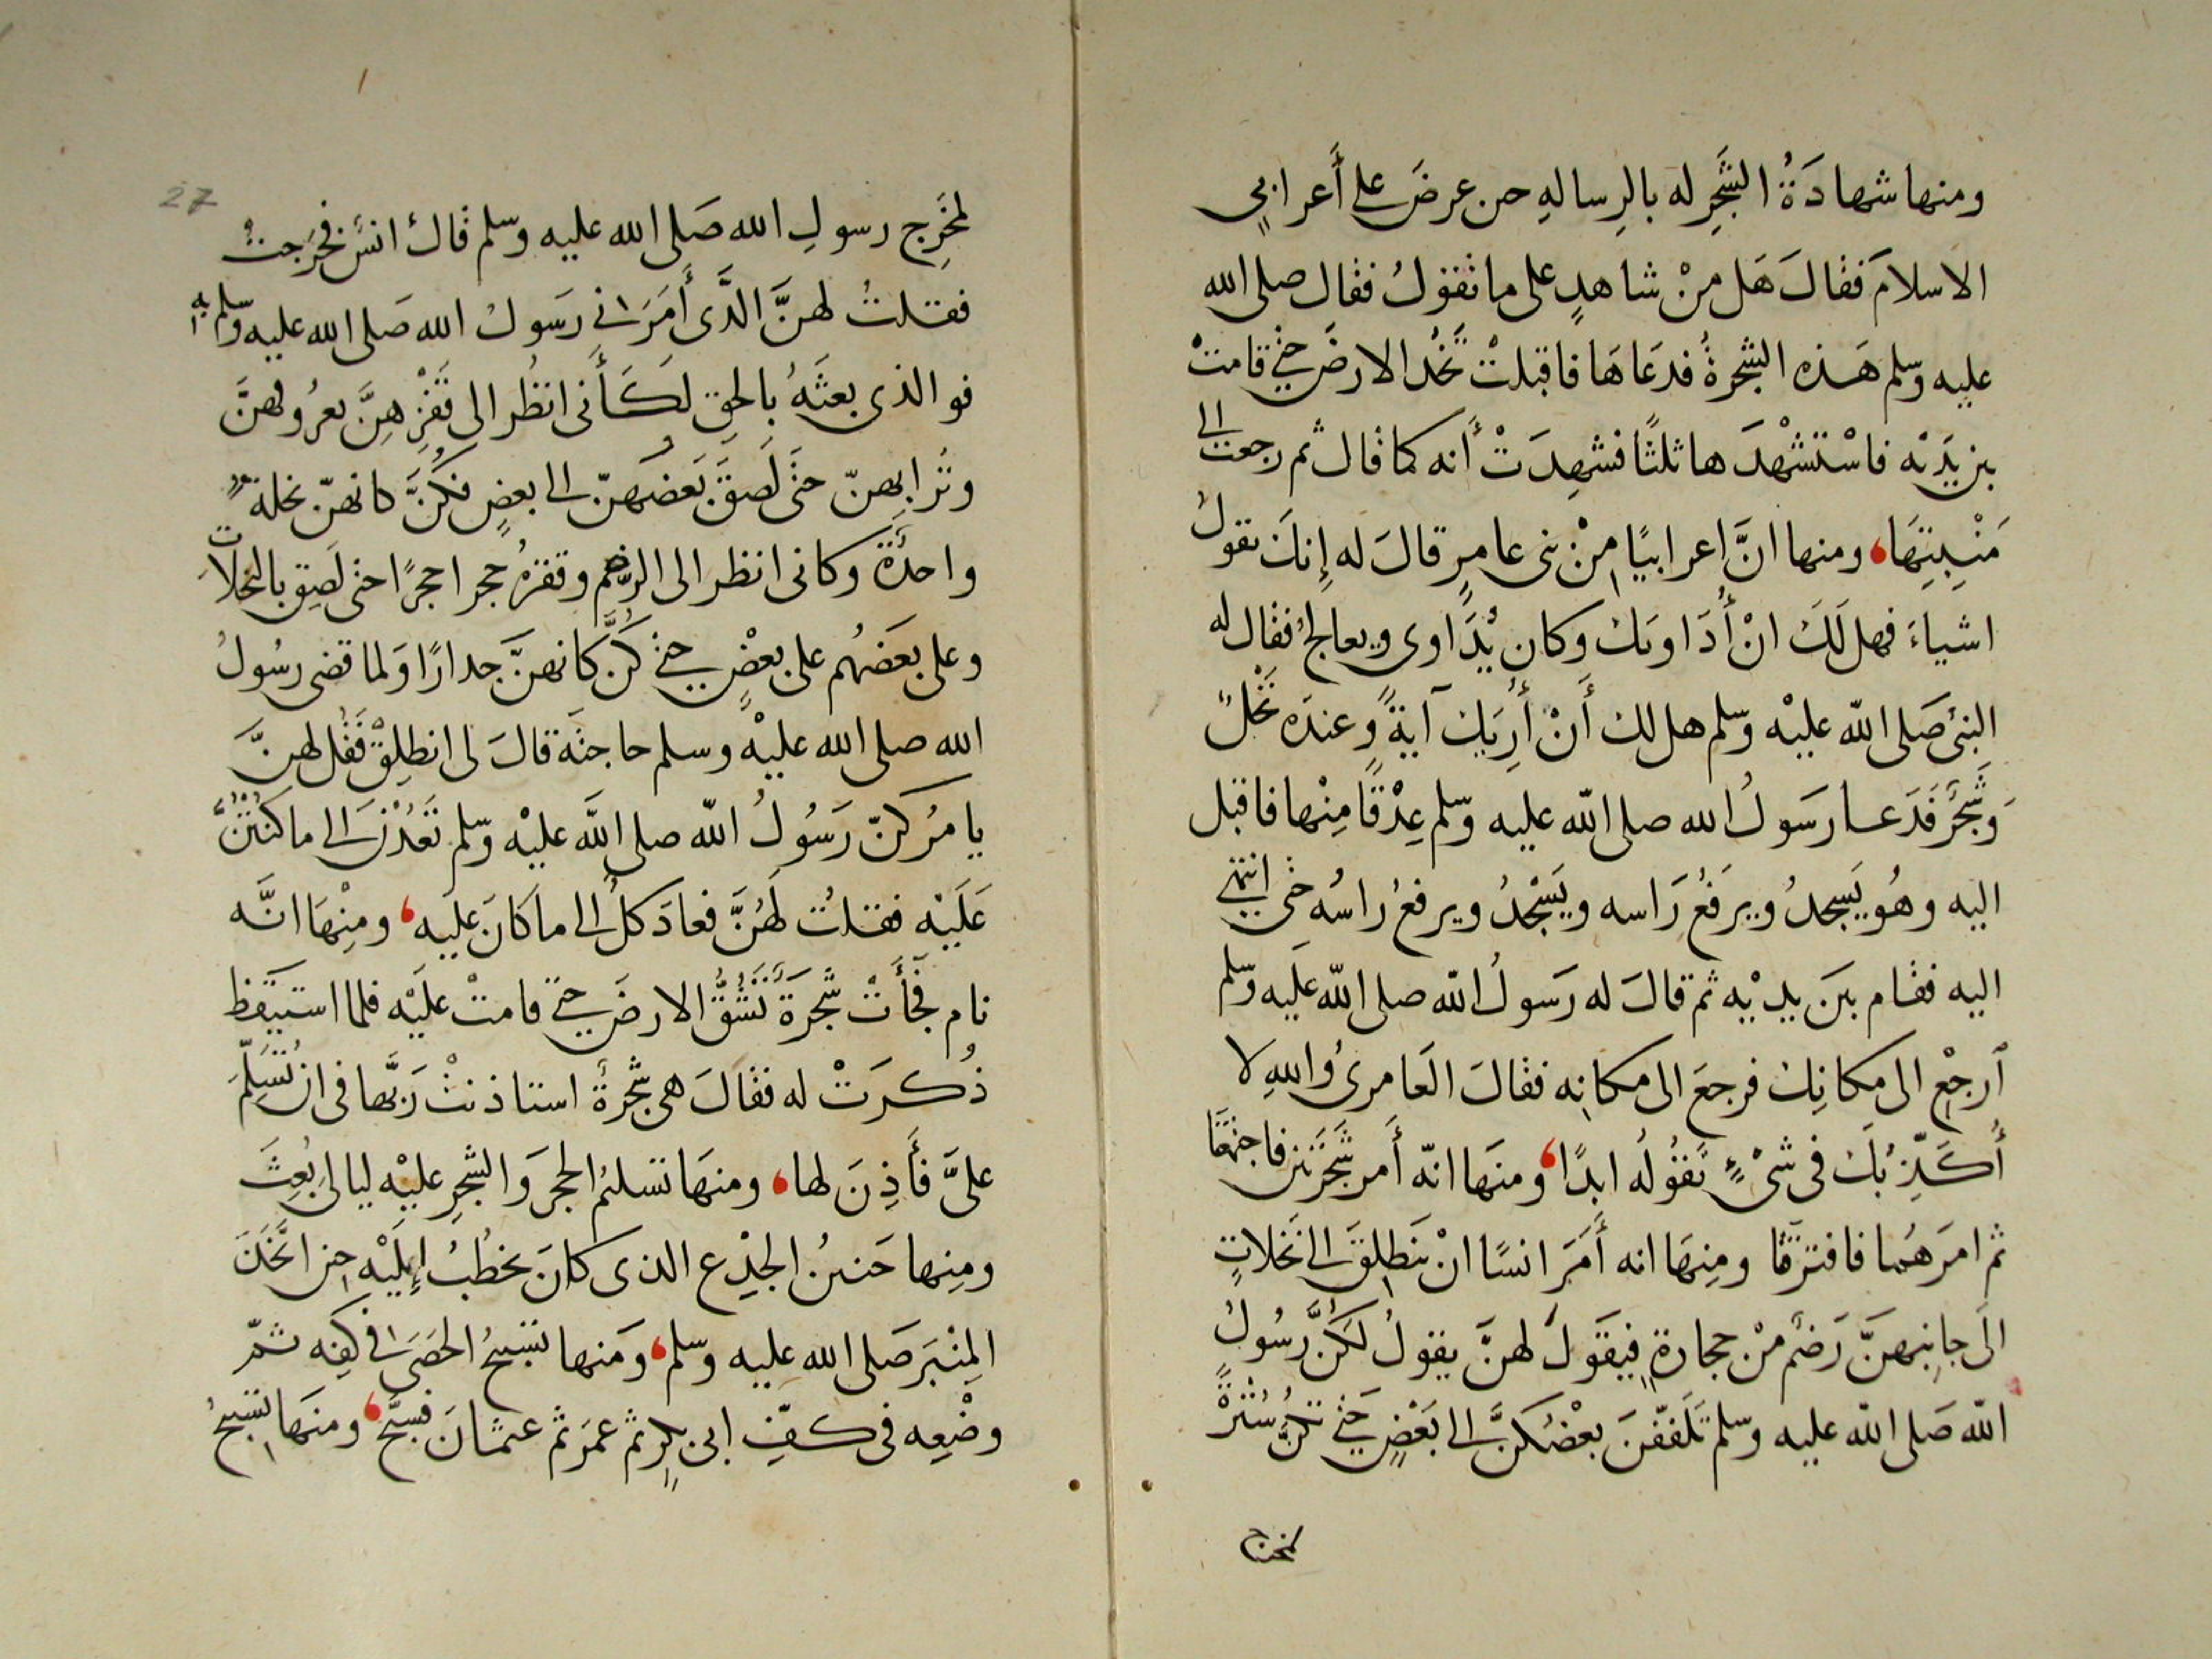 ومنها شهادَةُ الشَّجَرِ له بالرِسالهِ حىں عرضَ على أَعرابيٍ
الاسلامَ فقالَ هَل مِنْ شاهدٍ على ما تَقولُ فقال صلى الله
عليه وسلم هَذه الشجرةُ فدعَاهَا فاقبلتْ تَخُدُ الارضَ حتى قامتْ
بين يَدَيْه فاسْتَشْهَدَها ثلثًا فشهِدَتْ أنه كما قال ثم رجعت الى
مَنْبِتِهَا، ومنها انَّ اعرابيًا مِنْ بنى عامرٍ قالَ له إِنكَ تقولُ
اشياءَ فهل لَكَ انْ أُدَاويَكَ وكان يُدَاوى ويعالجُ فقال له
النبىُ صَلى الله عليْه وسلم هل لك أَنْ أُرِيَكَ آيةً وعندَه نَخْلٌ
وَشَجَرٌ فَدَعا رَسولُ الله صلى الله عليه وسلم عِذْقًا مِنْها فاقبل
اليه وهُو يَسجدُ ويرفَعُ رَاسه ويَسْجُدُ ويرفعُ راسُه حتى انتهى
اليه فقام بينَ يديْه ثم قالَ له رَسولُ الله صلى الله عليه وسلم
اَرجِعْ الى مكانِكَ فرجعَ الى مكانِه فقالَ العَامرىُ واللهِ لا
أُكَذِّبُكَ فى شىْءٍ تَقُولُه ابدًا، ومنهَا انه أَمر شَجَرَتَين فاجتمعَتَا
ثم امرَهُما فافترقَا ومِنهَا انه أَمَرَ انسًا انْ يَنطلِقَ الى نَخَلاتٍ
الَى جانِبهنَّ رَضمٌ مِنْ حجارةٍ فيقولَ لهنَّ يقولُ لكُنَّ رسُولُ
الله صَلى الله عليه وسلم تَلَفّفنَ بعْضُكنَّ الى بَعْضٍ حَتى تكُنَّ سُتْرَةً
لمخرج
27
لمخْرَجِ رسولِ الله صَلى الله عليه وسلم قال انسٌ فخَرَجتُ
فقلتُ لهنَّ الذَّى أَمَرَنى رَسولُ الله صَلى الله عليه وسلم به
فو الذى بعثَهُ بالحقِ لكَأَنى انظُر الى قَفْزِهِنَّ بعرُوقهنَّ
وتُرابِهنّ حتَى لَصِقَ بَعضُهنّ الى بعضٍ فكُنَّ كانهنّ نخلةٌ
واحدَةٌ وكانى انظر الى الرضم وقفزهُ حجرا حجرًا حتى لَصِق بالنخلاتِ
وعلى بعَضُهم على بعْضٍ حتى كُنَّ كانهنَّ جدارًا وَلما قضى رسُولُ
الله صلى الله عليْهِ وسلم حاجتَه قالَ لى انطلِقْ فَقُل لهنَّ
يامُركنّ رَسُولُ الله صلى الله عليْه وسلم تَعُدْنَ الى ما كنتنَّ
عَلَيْه فقلتُ لهُنَّ فعادَ كلٌ الى ما كَانَ عليه، ومنِهَا انَّه
نام فجَأَتْ شَجَرَةٌ تَشُقُّ الارضَ حتى قامتْ عليْه فلما استيقظ
ذُكرَتْ له فقالَ هى شجَرةٌ استاذنتْ رَبَّها فى ان تُسَلِّمَ
علىَّ فأَذِنَ لها، ومنهَا تسليمُ الحجرِ وَالشجرِ عليْه ليالىَ بُعِثَ
ومِنها حَنىںُ الجِذْعِ الذى كانَ يخطُبُ إِليْهِ حىں اتَّخَذَ
المِنْبَرَ صَلى الله عليه وسلم، ومَنها تسبيحُ الحصَى فى كَفِه ثمّ
وضْعِه فى كفِّ ابى بكرٍ ثم عمرَ ثم عثمانَ فسبَّحَ، ومنهَا تسبيحُ